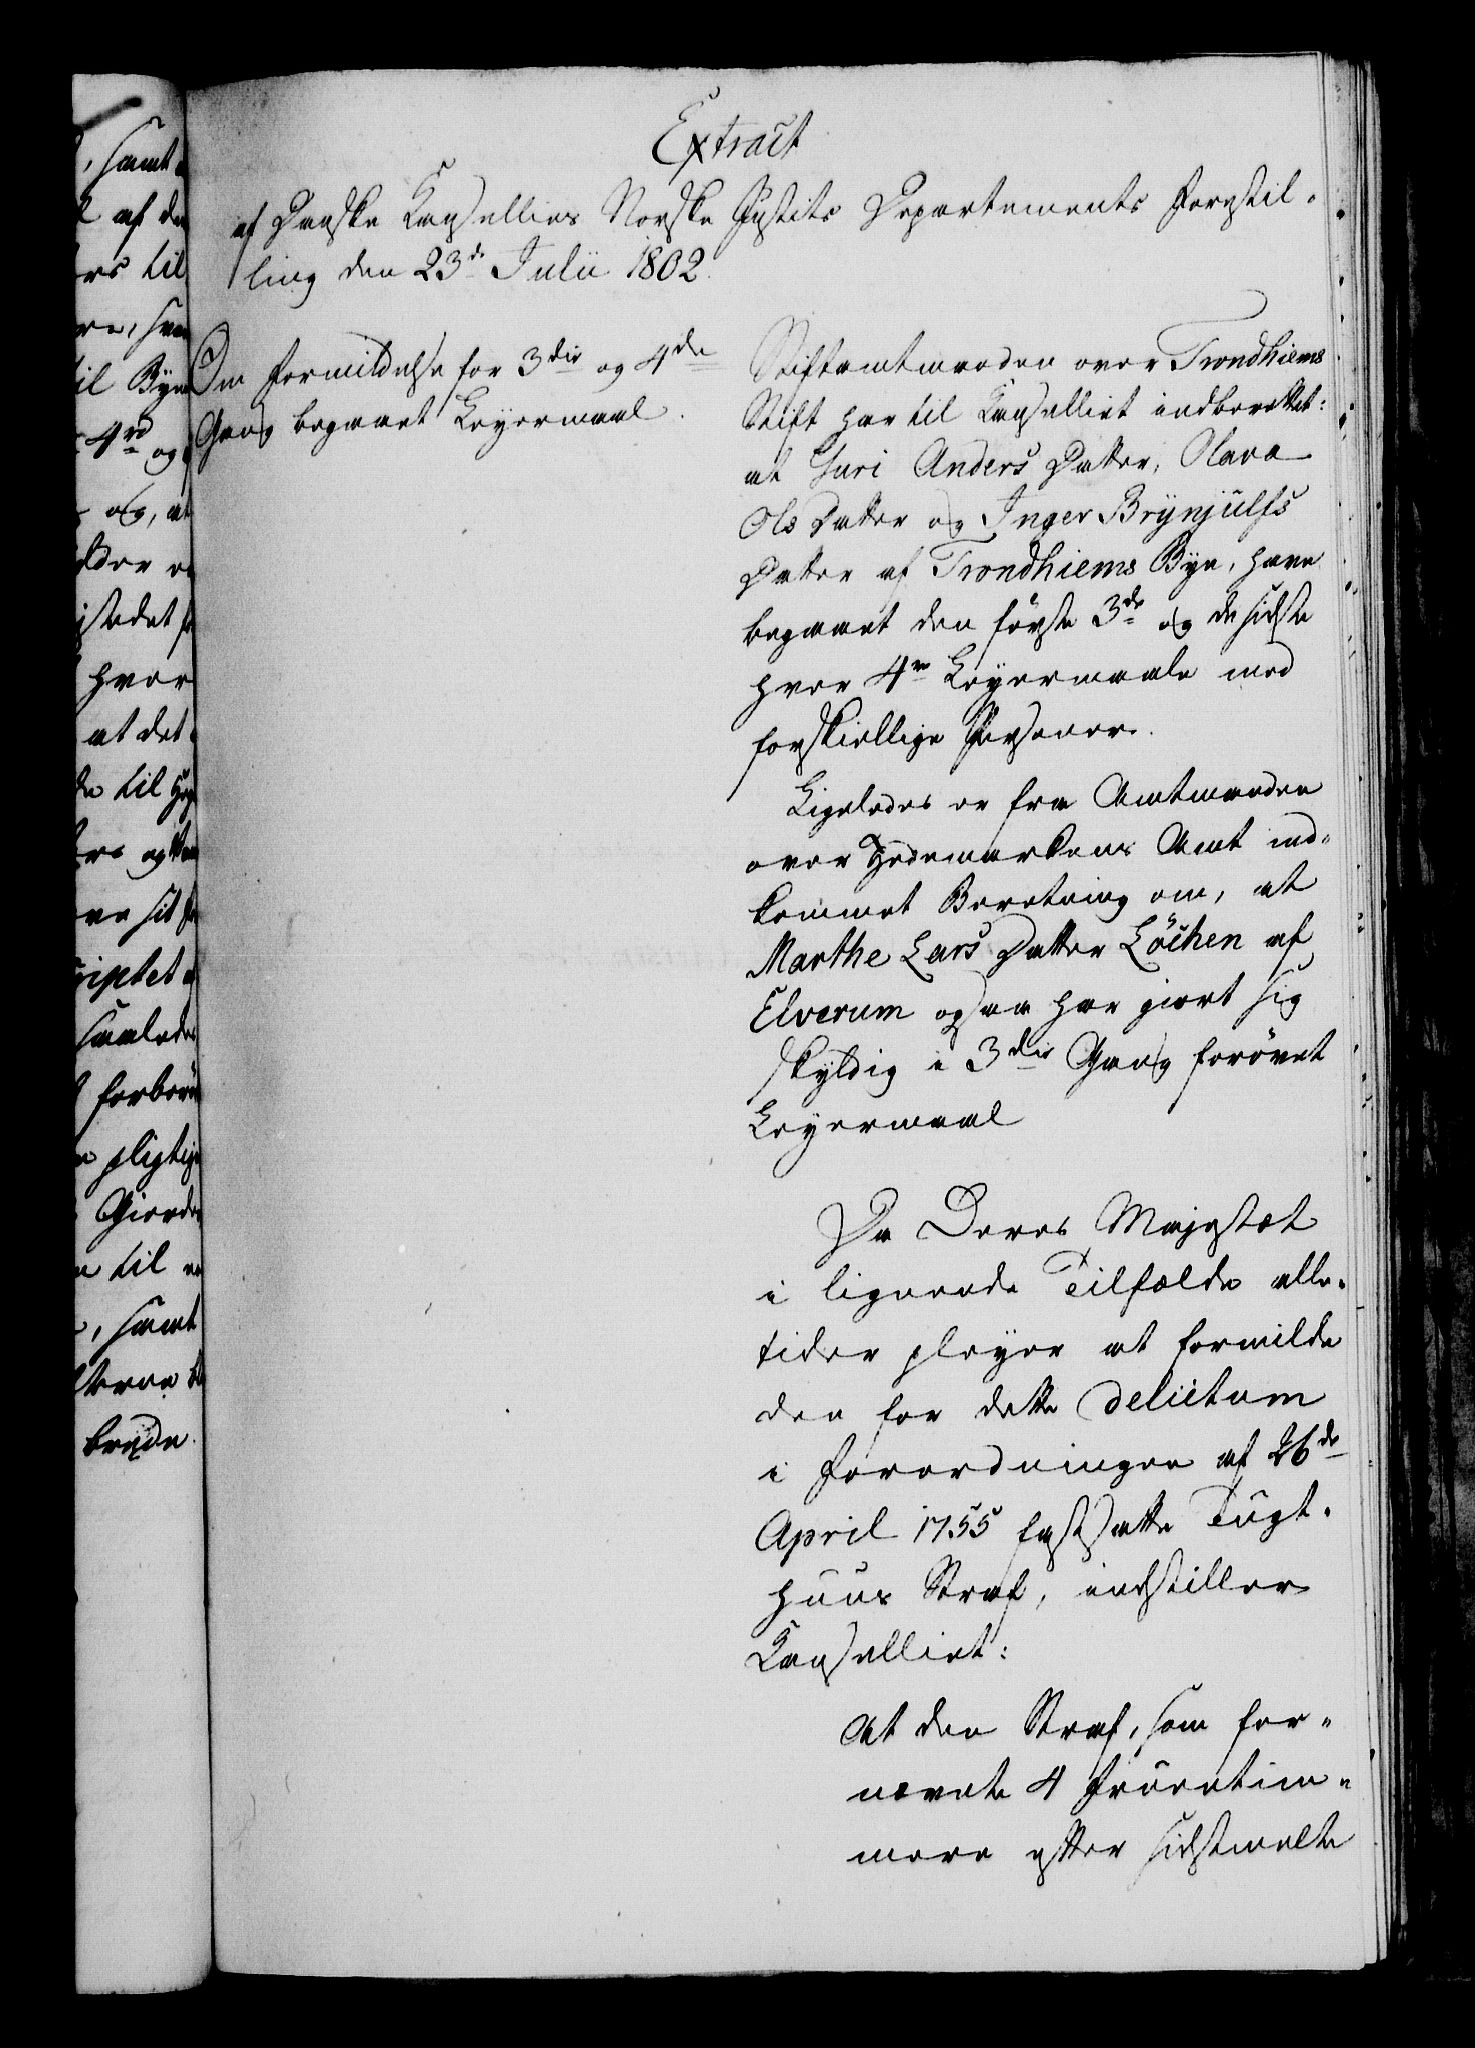 Extract
af Danske Cancelliets Norske Justits Departements Forestil-
ling den 23de Julii 1802.
Om Formildelse for 3die og 4de
Gang begaaet Leyermaal.
Stiftamtmanden over Trondhiems
Stift har til Cancelliet indberettet:
at Guri Anders Datter, Olava
Ols Datter og Inger Brynjulfs
Datter af Trondhiems Bye, have
begaaet den første 3de og de sidste
hver 4re Leyermaale med
forskiellige Personer.
Ligeledes er fra Amtmanden
over Hedemarkens Amt ind-
kommet Beretning om, at
Marthe Lars Datter Löchen af
Elverum ogsaa har giort sig
skyldig i 3die Gang forøvet
Leyermaal
Da Deres Majestæt
i lignende Tilfælde alle-
tider pleyer at formilde
den for dette Delictum
i Forordningen af 26de
April 1755 fastsatte Tugt-
huus Straf, indstiller
Cancelliet:
at den Straf, som for-
nævnte 4 Fruentim-
mere efter sidstmelte
samt
af den
til
til Bye
4re og
og, at
istedet
hver
at det
til
og
sit
saaledes
pligtig
til
samt